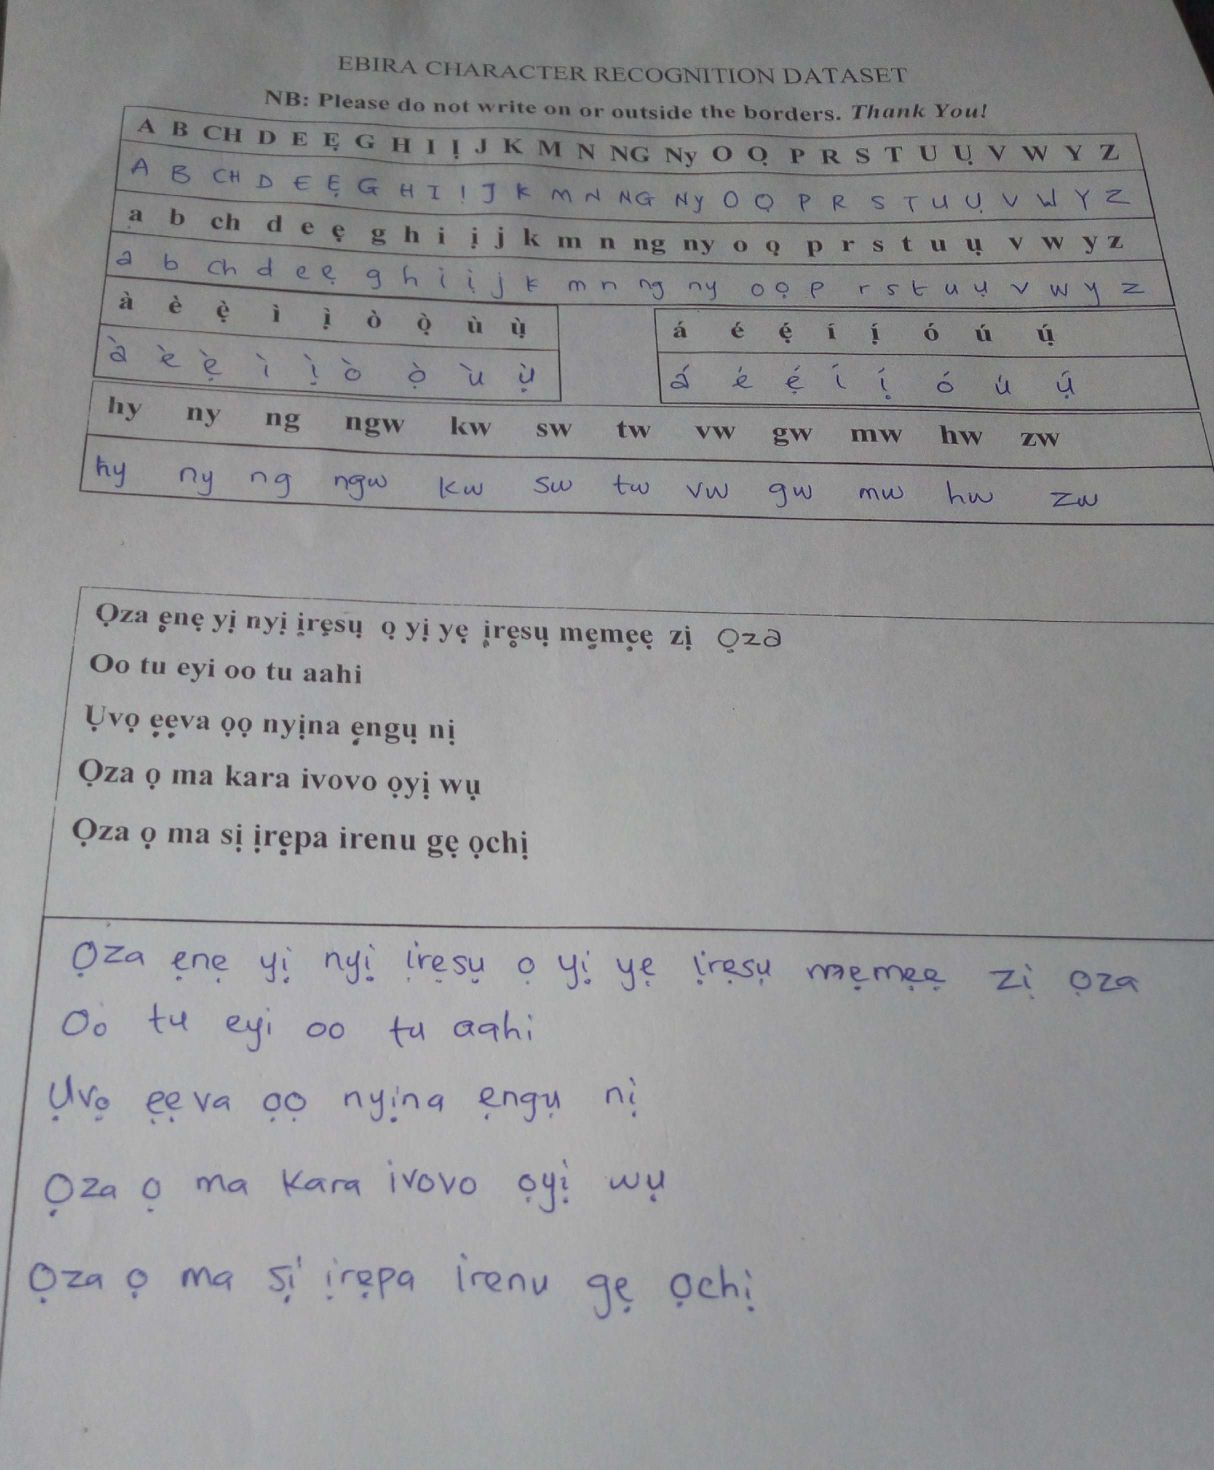 EBIRA CHARACTER RECOGNITION DATASET
NB: Please do not write on or outside the borders. Thank You!
A B CH D E Ẹ G H I Ị J K M N NG Ny O Ọ P R S T U Ụ V W Y Z
A B CH D E Ẹ G H I Ị J K M N NG Ny O Ọ P R S T U Ụ V W Y Z
a b ch d e ẹ g h i ị j k m n ng ny o ọ p r s t u ụ v w y z
a b ch d e ẹ g h i ị j k m n ng ny o ọ p r s t u ụ v w y z
à è ẹ̀ ì ị̀ ò ọ̀ ù ụ̀ á é ẹ́ í ị́ ó ú ụ́
à è ẹ̀ ì ị̀ ò ọ̀ ù ụ̀ á é ẹ́ í ị́ ó ú ụ́
hy ny ng ngw kw sw tw vw gw mw hw zw
hy ny ng ngw kw sw tw vw gw mw hw zw
Ọza ẹnẹ yị nyị ịrẹsụ ọ yị yẹ ịrẹsụ mẹmẹẹ zị ọza
Oo tu eyi oo tu aahi
Ụvọ ẹẹva ọọ nyịna ẹngụ nị
Ọza ọ ma kara ivovo ọyị wụ
Ọza ọ ma sị ịrẹpa irenu gẹ ọchị
Ọza ẹnẹ yị nyị irẹsụ ọ yị yẹ ịrẹsụ mẹmẹẹ zị ọza
Oo tu eyi oo tu aahi
Ụvọ ẹẹva ọọ nyịna ẹngụ nị
Ọza ọ ma kara ivovo ọyị wụ
Ọza ọ ma sị ịrẹpa irenu gẹ ọchị